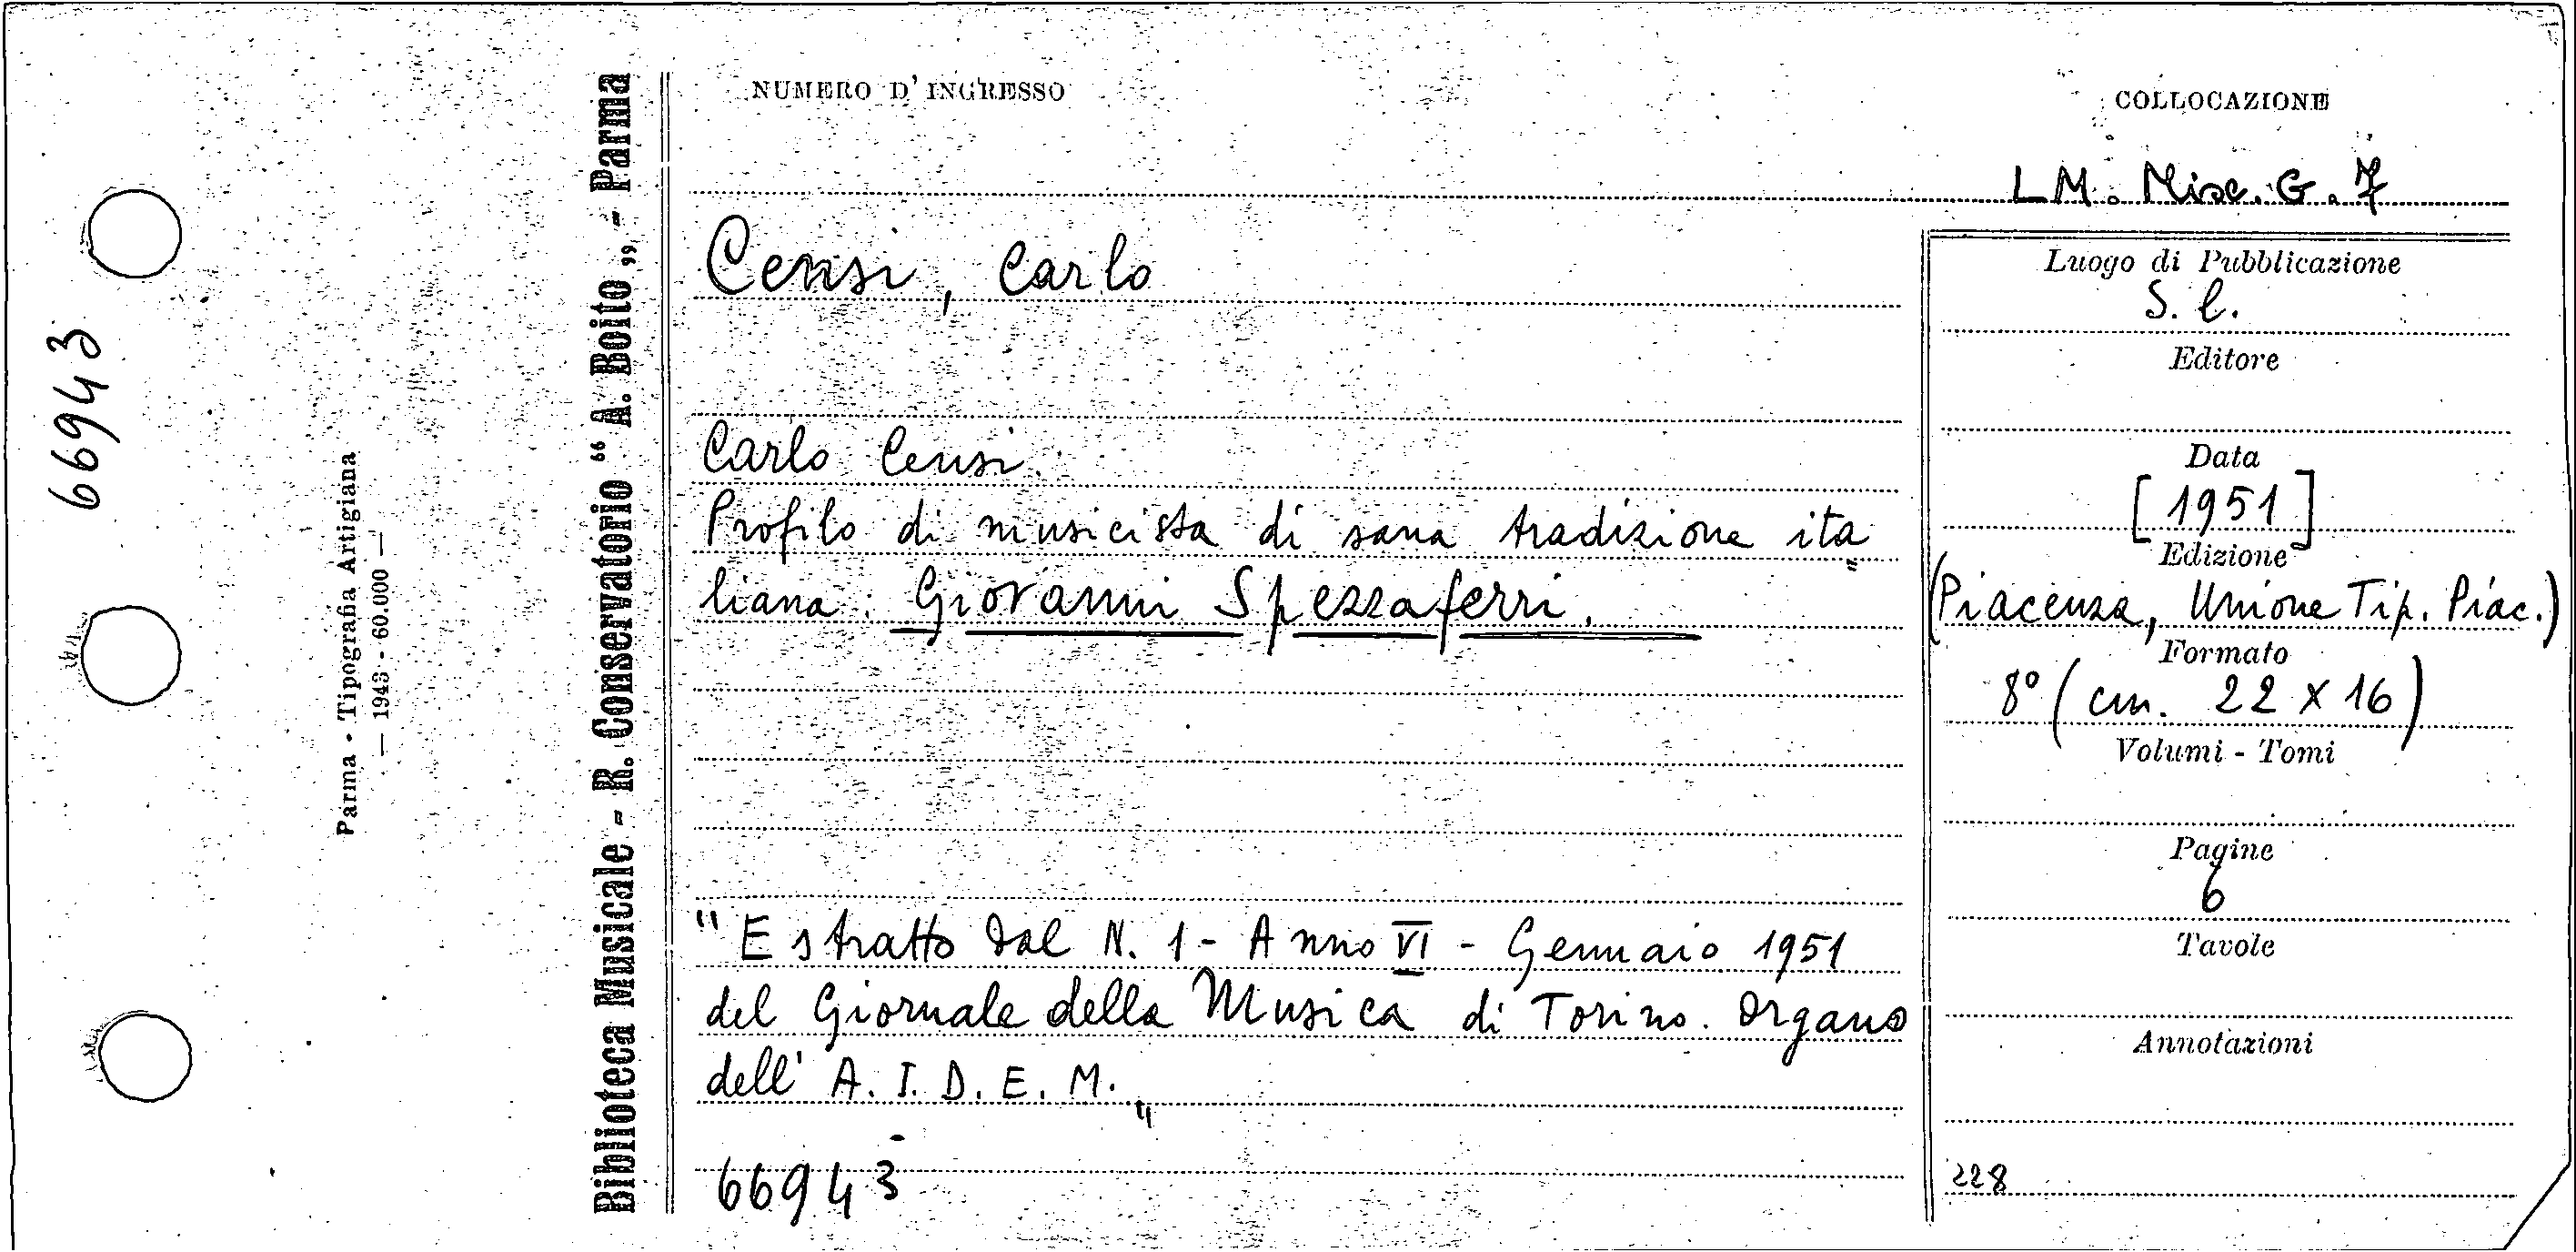 66943
Parma - Tipografia Artigiana
— 1943 - 60.000 —
Biblioteca Musicale - R. Conservatorio “ A. Boito „ - Parma
NUMERO D' INGRESSO
COLLOCAZIONE
LM. Misc. G. 7
Censi, Carlo
Carlo Censi.
Profilo di musicista di sana tradizione ita
liana: Giovanni Spezzaferri.
"Estratto dal N. 1 - Anno VI - Gennaio 1951
del Giornale della Musica di Torino. Organo
dell' A. I. D. E. M. „
66943
Luogo di Pubblicazione
S. l.
Editore
Data
[1951]
Edizione
(Piacenza, Unione Tip. Piac.)
Formato
8° (cm. 22 x 16)
Volumi - Tomi
Pagine
6
Tavole
Annotazioni
228